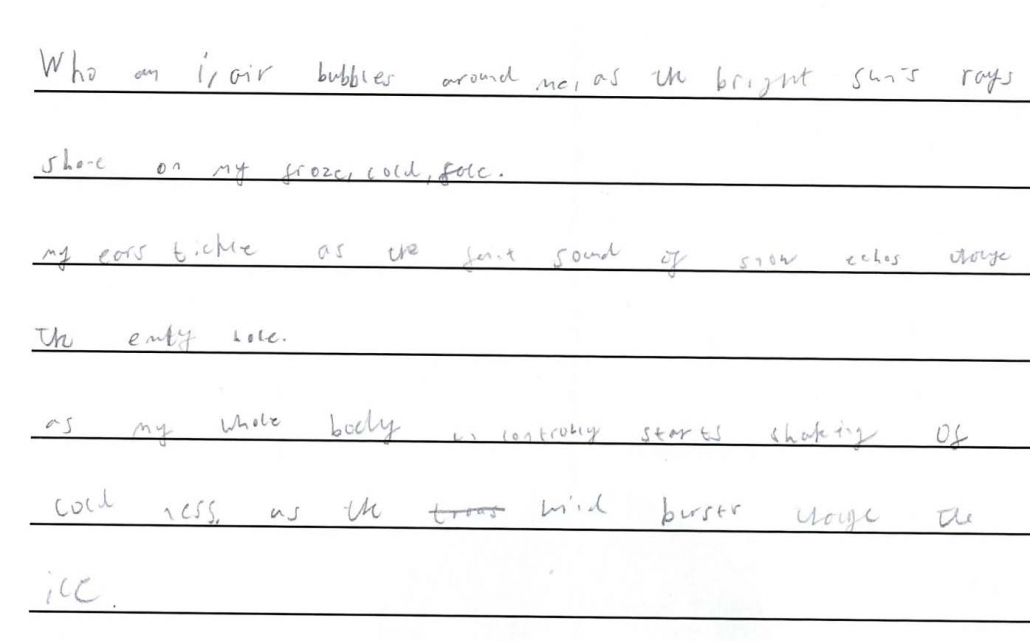 Who am i, air bubbles around me, as the bright sun's rays
shone on my froze, cold, face.
my ears tickle as the faint sound of snow echos thouge
the emty hole.
as my whole body un controly starts shaking of
cold ness, as the wind bursts thouge the
ice.